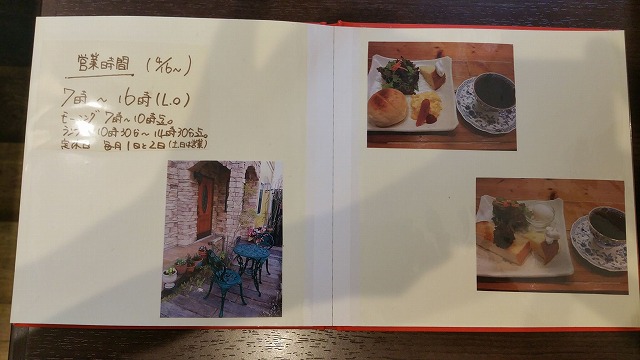 営業時間 (4/6〜)
7時 〜 16時 (L.O)
モーニング 7時〜10時迄。
ランチ 10時30分〜14時30分迄。
定休日 毎月1日と2日(土日は営業)